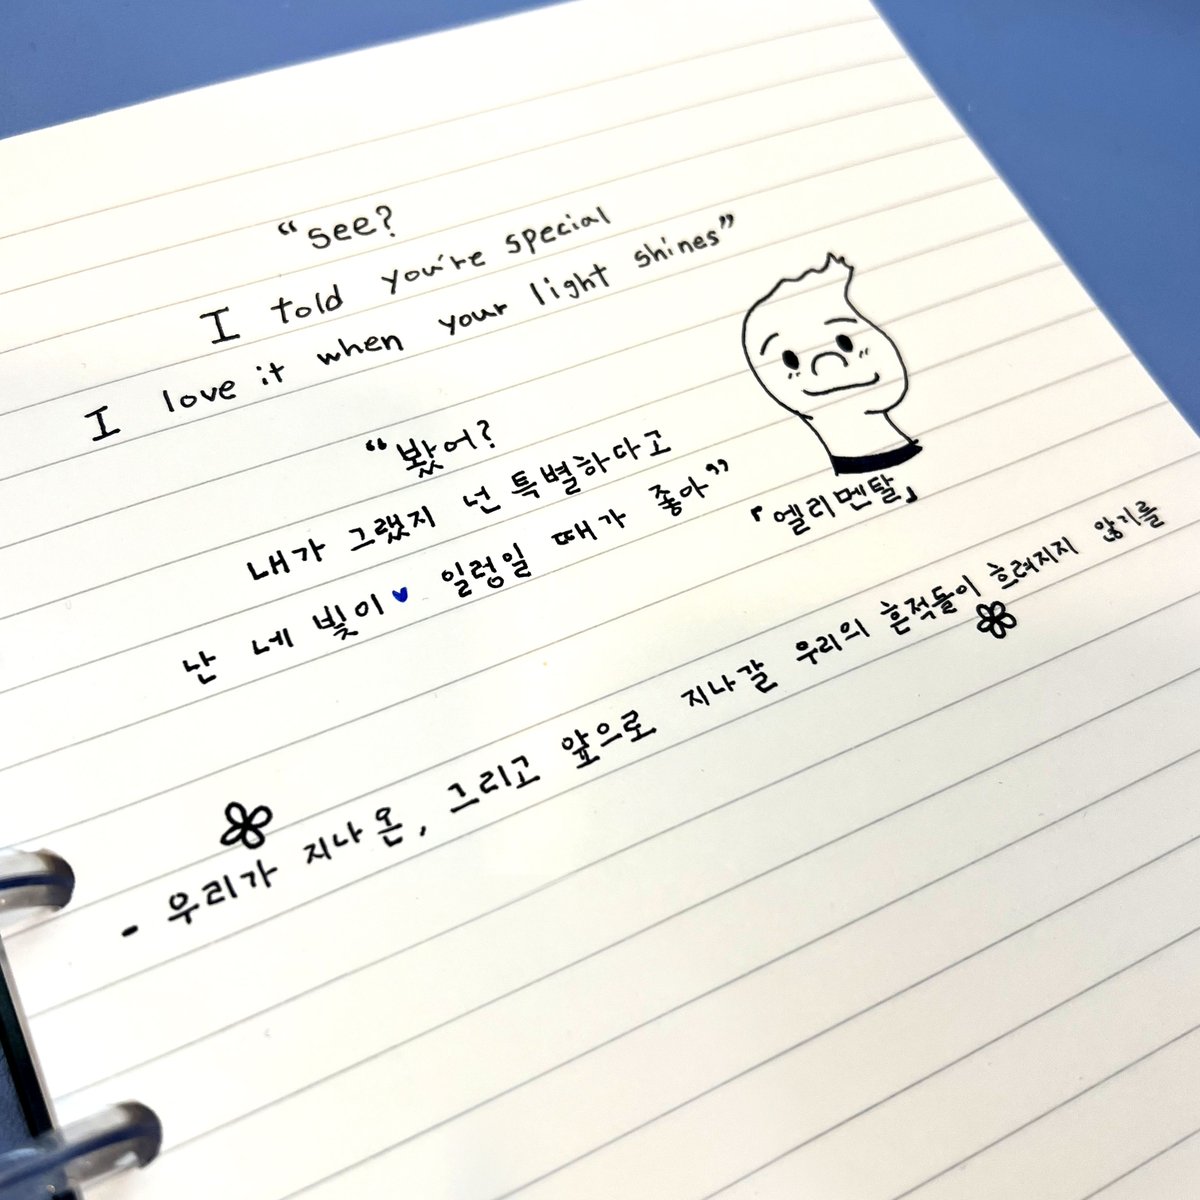 “see?
I told you're special
I love it when your light shines”
“봤어?
내가 그랬지 넌 특별하다고
난 네 빛이 일렁일 때가 좋아”
『엘리멘탈』
- 우리가 지나온, 그리고 앞으로 지나갈 우리의 흔적들이 흐려지지 않기를